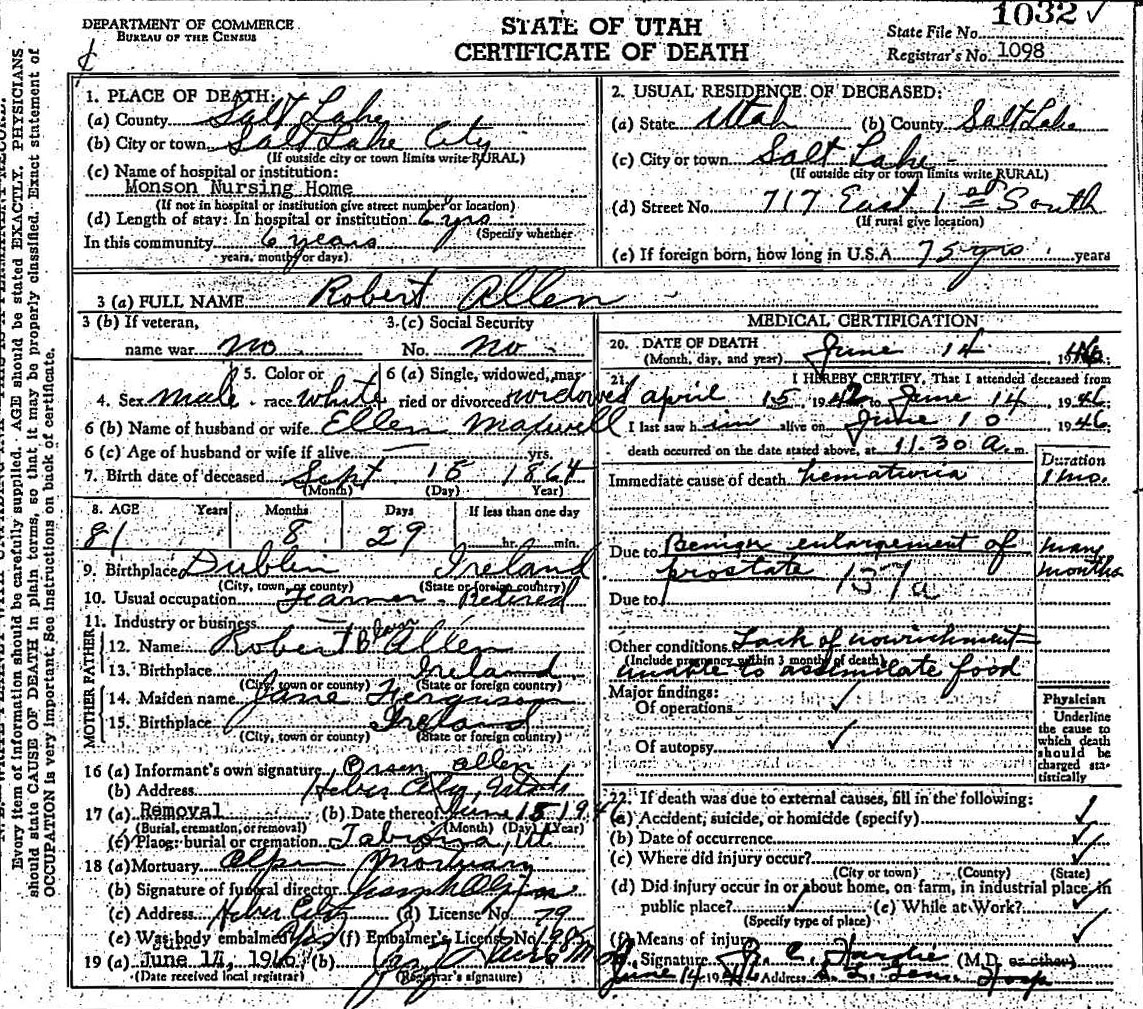 DEPARTMENT OF COMMERCE
BUREAU OF THE CENSUS
STATE OF UTAH
CERTIFICATE OF DEATH
1032 ✓
State File No.
Registrar's No. 1098
Every item of information should be carefully supplied. AGE should be stated EXACTLY. PHYSICIANS
should state CAUSE OF DEATH in plain terms, so that it may be properly classified. Exact statement of
OCCUPATION is very important. See instructions on back of certificate.
1. PLACE OF DEATH:
(a) County Salt Lake
(b) City or town Salt Lake City
(If outside city or town limits write RURAL)
(c) Name of hospital or institution:
Monson Nursing Home
(If not in hospital or institution give street number or location)
(d) Length of stay: In hospital or institution 6 yrs
(Specify whether
In this community 6 years
years, months or days)
2. USUAL RESIDENCE OF DECEASED:
(a) State Utah (b) County Salt Lake
(c) City or town Salt Lake
(If outside city or town limits write RURAL)
(d) Street No. 717 East 1st South
(If rural give location)
(e) If foreign born, how long in U.S.A. 75 yrs years
3 (a) FULL NAME Robert Allen
3 (b) If veteran,
name war no
3.(c) Social Security
No. no
4. Sex male
5. Color or
race white
6 (a) Single, widowed, mar-
ried or divorced widowed
6 (b) Name of husband or wife Ellen Maxwell
6 (c) Age of husband or wife if alive yrs.
7. Birth date of deceased Sept 15 1864
(Month) (Day) Year)
8. AGE Years Months Days If less than one day
81 8 29 hr. min.
9. Birthplace Dublin Ireland
(City, town, or county) (State or foreign country)
10. Usual occupation Farmer - Retired
11. Industry or business
FATHER
12. Name Robert Allen
13. Birthplace Ireland
(City, town or county) (State or foreign country)
MOTHER
14. Maiden name Jane Ferguson
15. Birthplace Ireland
(City, town or county) (State or foreign country)
16 (a) Informant's own signature Orson Allen
(b) Address Heber City, Utah
17 (a) Removal (b) Date thereof June 15 194
(Burial, cremation, or removal) (Month) (Day) (Year)
(c) Place: burial or cremation Tabiona, Ut.
18 (a) Mortuary Mortuary
(b) Signature of funeral director
(c) Address Heber City (d) License No. 79
(e) Was body embalmed yes (f) Embalmer's License No.
19 (a) June 14, 1946 (b)
(Date received local registrar) (Registrar's signature)
MEDICAL CERTIFICATION
20. DATE OF DEATH
(Month, day, and year) June 14 1946
21. I HEREBY CERTIFY, That I attended deceased from
april 15 1942 to June 14 1946
I last saw him alive on June 10 1946
death occurred on the date stated above, at 11.30 A.m.
Duration
Immediate cause of death hematuria 1 mo.
Due to Benign enlargement of many
prostate 137a months
Due to
Other conditions Lack of nourishment
(Include pregnancy within 3 months of death)
unable to assimilate food
Major findings:
Of operations ✓
Of autopsy ✓
Physician
Underline
the cause to
which death
should be
charged sta-
tistically
22. If death was due to external causes, fill in the following:
(a) Accident, suicide, or homicide (specify) ✓
(b) Date of occurrence ✓
(c) Where did injury occur? ✓
(City or town) (County) (State)
(d) Did injury occur in or about home, on farm, in industrial place, in
public place? ✓ (e) While at Work? ✓
(Specify type of place)
(f) Means of injury ✓
Signature C. Hardie (M.D. or other)
June 14 1946 Address S. L. Gen. Hosp